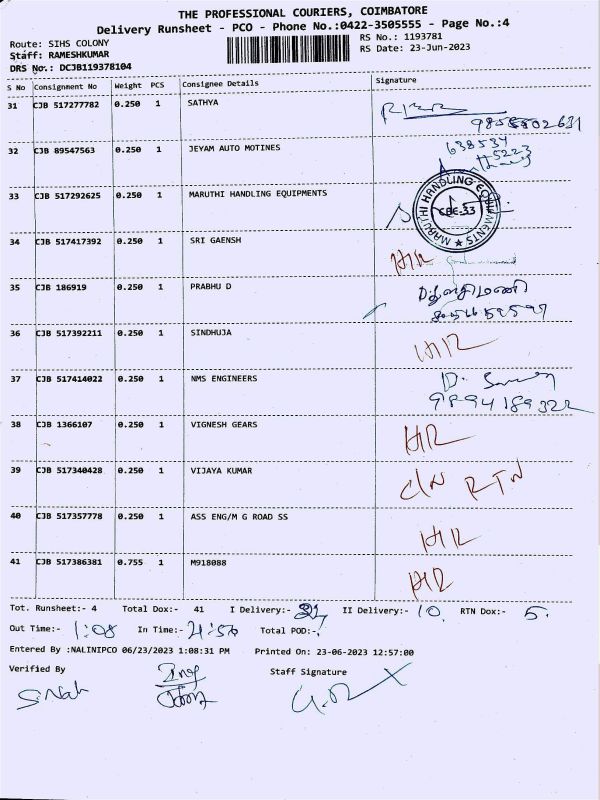 THE PROFESSIONAL COURIERS, COIMBATORE
Delivery Runsheet - PCO - Phone No.:0422-3505555 - Page No.:4
Route: SIHS COLONY
RS No.: 1193781
Staff: RAMESHKUMAR
RS Date: 23-Jun-2023
DRS No.: DCJB119378104
S No Consignment No Weight PCS Consignee Details Signature
31 CJB 517277782 0.250 1 SATHYA
32 CJB 89547563 0.250 1 JEYAM AUTO MOTINES
638534
5223
33 CJB 517292625 0.250 1 MARUTHI HANDLING EQUIPMENTS
MARUTHI HANDLING EQUIPMENTS
CBE-33
34 CJB 517417392 0.250 1 SRI GAENSH
35 CJB 186919 0.250 1 PRABHU D
36 CJB 517392211 0.250 1 SINDHUJA
37 CJB 517414022 0.250 1 NMS ENGINEERS
9894189322
38 CJB 1366107 0.250 1 VIGNESH GEARS
39 CJB 517340428 0.250 1 VIJAYA KUMAR C/N RTN
40 CJB 517357778 0.250 1 ASS ENG/M G ROAD SS
41 CJB 517386381 0.755 1 M918088
Tot. Runsheet:- 4 Total Dox:- 41 I Delivery:- II Delivery:- 10. RTN Dox:- 5.
Out Time:- 1:08 In Time:- 4:50 Total POD:-
Entered By :NALINIPCO 06/23/2023 1:08:31 PM Printed On: 23-06-2023 12:57:00
Verified By Staff Signature